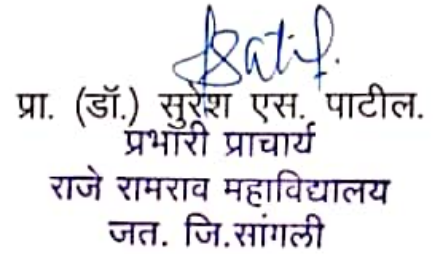 प्रा. (डॉ.) सुरेश एस. पाटील.
प्रभारी प्राचार्य
राजे रामराव महाविद्यालय
जत. जि.सांगली